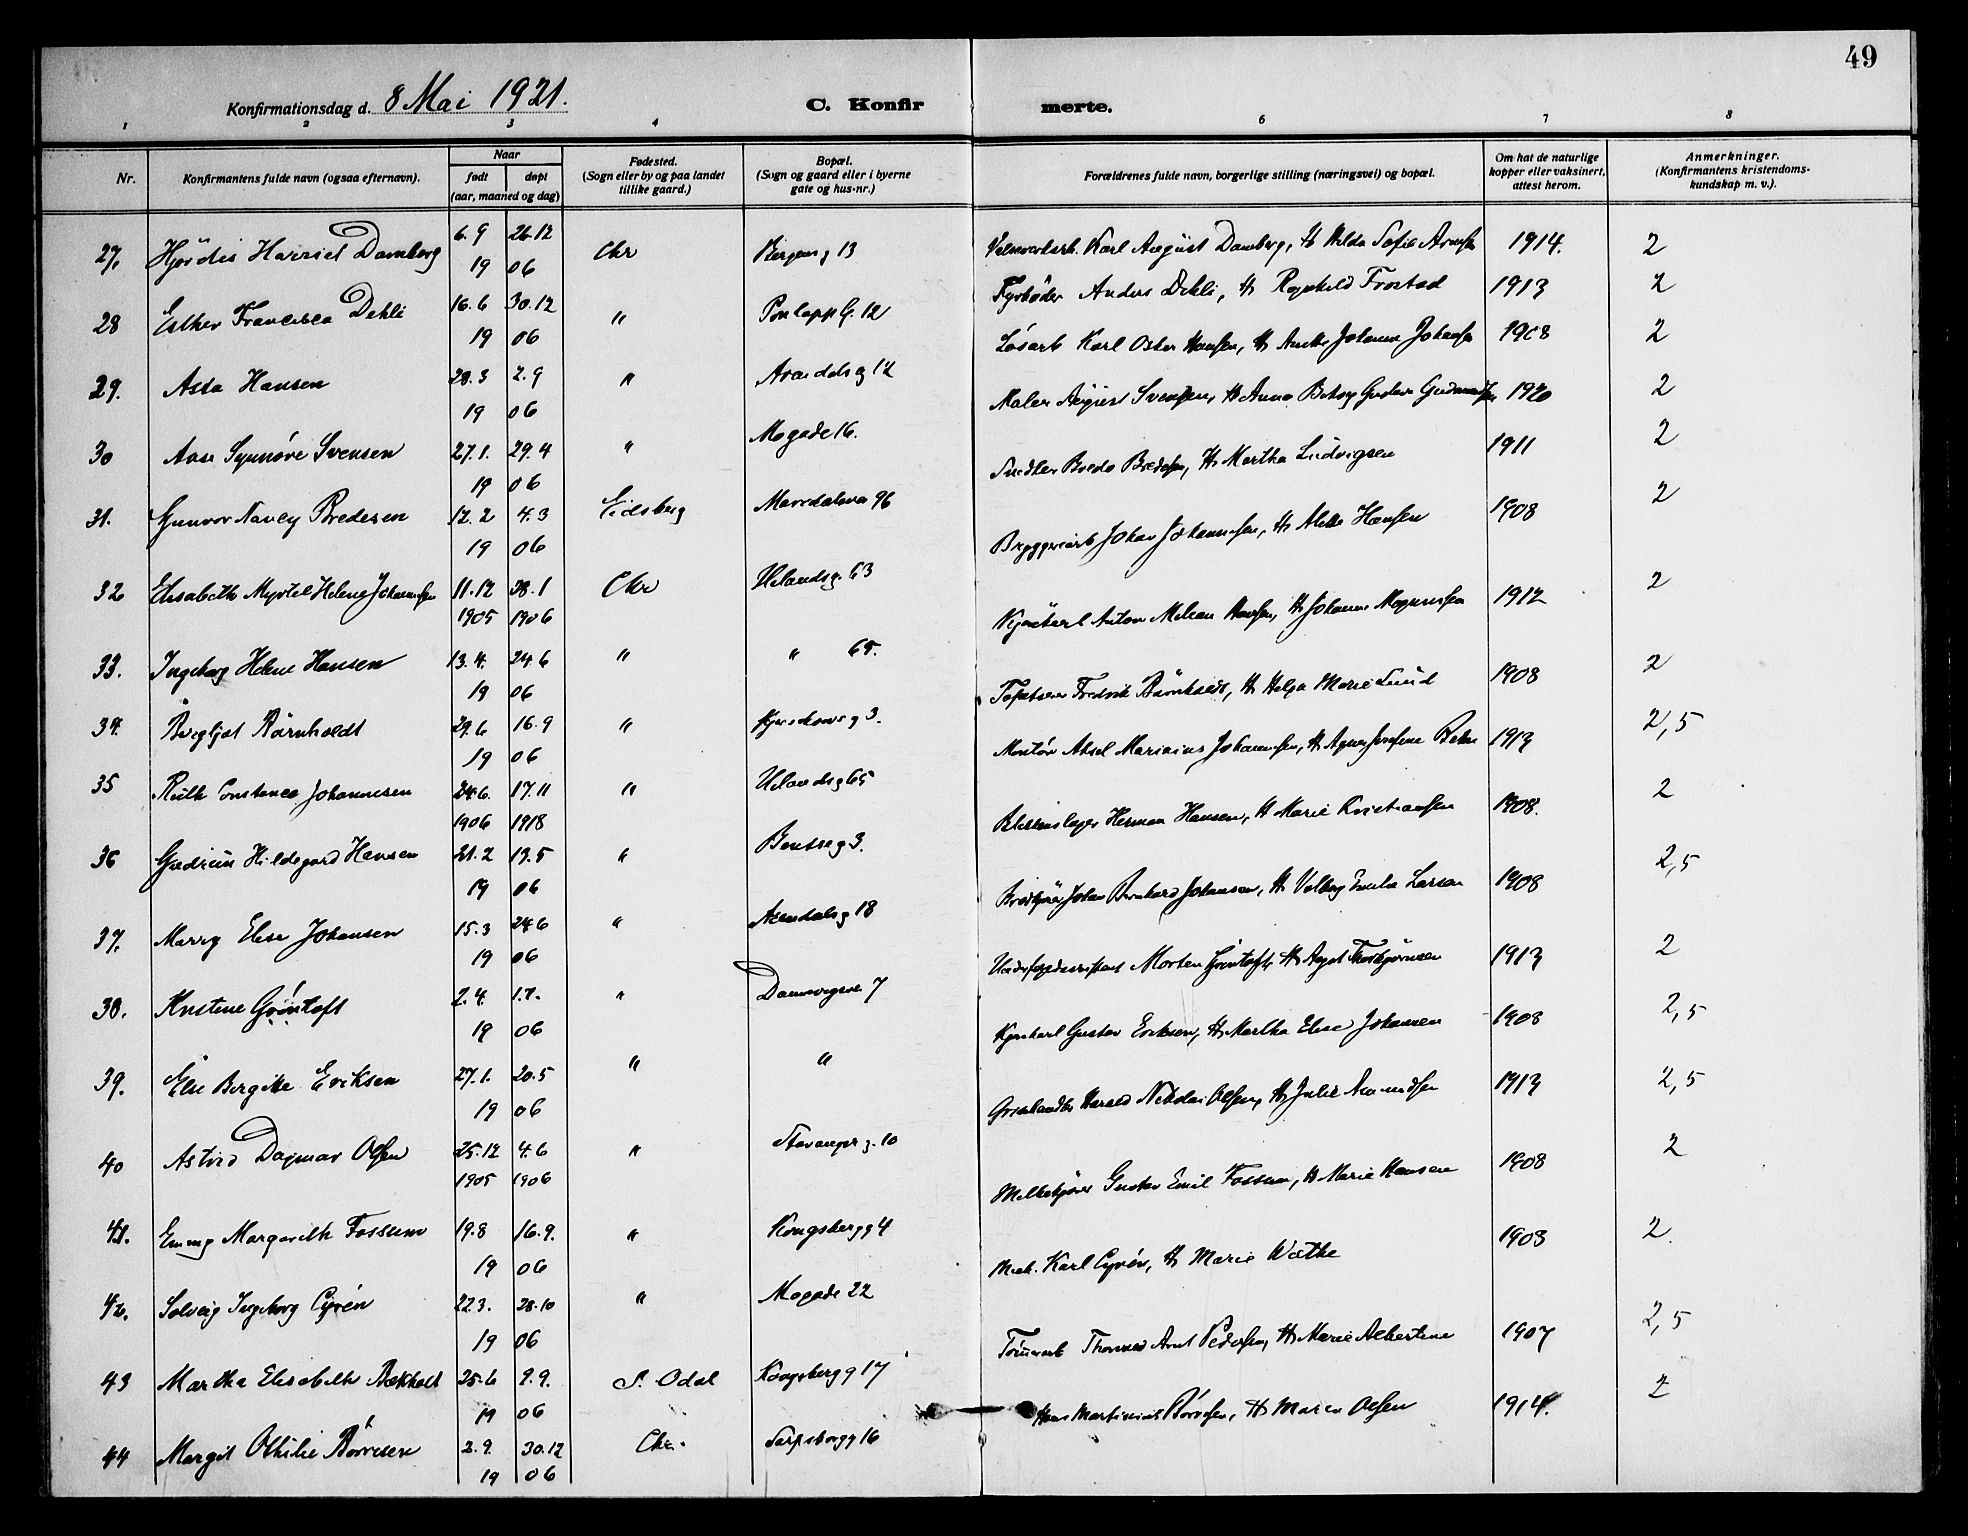 49
Konfirmationsdag d. 8 Mai 1921. C. Konfirmerte.
1 2 3 4 6 7 8
Nr. Konfirmantens fulde navn (ogsaa efternavn). Naar født døpt (aar, maaned og dag) Fødested. (Sogn eller by og paa landet tillike gaard.) Bopæl. (Sogn og gaard eller i byerne gate og hus-nr.) Forældrenes fulde navn, borgerlige stilling (næringsvei) og bopæl. Om hat de naturlige kopper eller vaksinert, attest herom. Anmerkninger. (Konfirmantens kristendomskundskap m. v.).
27. Hjördis Harriet Damberg 6.9 19 26.12 06 Chr Bergensg 13 Karl August Damberg, H Hilda Sofie 1914. 2
28 Esther Francisca Dehli 16.6 19 30.12 06 " 12 Fyrbøder Anders Dehli, H Ragnhild Frostad 1913 2
29. Asta Hansen 28.3 19 2.9 06 " Arendalsg 12 Løsarb Karl Oskar Hansen, H Johanne Johansen 1908 2
30 Aase Synnøve Svensen 27.1. 19 29.4 06 " Mogade 16. Maler August Svensen, H Anna Betsy 1920 2
31. Gunvor Nancy Bredesen 12.2 19 4.3 06 Eidsberg Maridalsvn 96 Snedker Bredo Bredesen, H Martha Ludvigsen 1911 2
32 Elisabeth Myrtel Helene Johannesen 11.12 1905 28.1 1906 Chr Uelandsg. 63 Bryggeriarb Johan Johannesen, H Alette Hansen 1908 2
33. Ingeborg Helene Hansen 13.4. 19 24.6 06 " " 65. Anton Hansen, H Johanne Magnussen 1912 2
34. Bergljot Barnholdt 29.6 19 16.9 06 " 3. Fredrik Barnholdt, H Helga Marie Lund 1908 2
35 Ruth Constance Johannesen 24.6. 1906 17.11 1918 " Uelandsg 65 Montør Aksel Marinius Johannesen, H Agnes Josefine 1913 2,5
36 Gudrun Hildegard Hansen 21.2 19 13.5 06 " Bentseg 3. Blikkenslager Herman Hansen, H Marie Kristiansen 1908. 2
37. Marry Elise Johansen 15.3 19 24.6 06 " Arendalsg 18 Johan Bernhard Johansen, H Valborg Emilie Larsen 1908 2,5
38. Kristine Gröntoft 2.4. 19 1.7. 06 " 7 Morten Gröntoft, H Thorbjørnsen 1913 2
39. Else Birgitte Eriksen 27.1. 19 20.5 06 " " Kjørekarl Gustav Eriksen, H Martha Elise Johansen 1908 2,5
40 Astrid Dagmar Olsen 25.12 1905 4.6 1906 " Stavangerg. 10 Harald Nikolai Olsen, H Julie Amundsen 1913 2,5
41. Emmy Margareth Fossum 19.8 19 16.9. 06 " Kongsbergg 4 Melkekjører Gustav Emil Fossum, H Marie Hansen 1908 2
42. Solveig Ingeborg Cyrén 22.3. 19 28.10 06 " Mogade 22 Mek. Karl Cyrén, H Marie Wæthe 1908 2.
43 Martha Elisabeth Bækholt 25.6 19 9.9. 06 S. Odal Kongsbergg 17 Thorvald Arnt Pedersen, H Marie Albertine 1907 2,5
44 Margit Othilie Børresen 2.9. 19 30.12 06 Chr. Sarpsborgg 16 Hans Martinius Børresen, H Maren Olsen 1914. 2